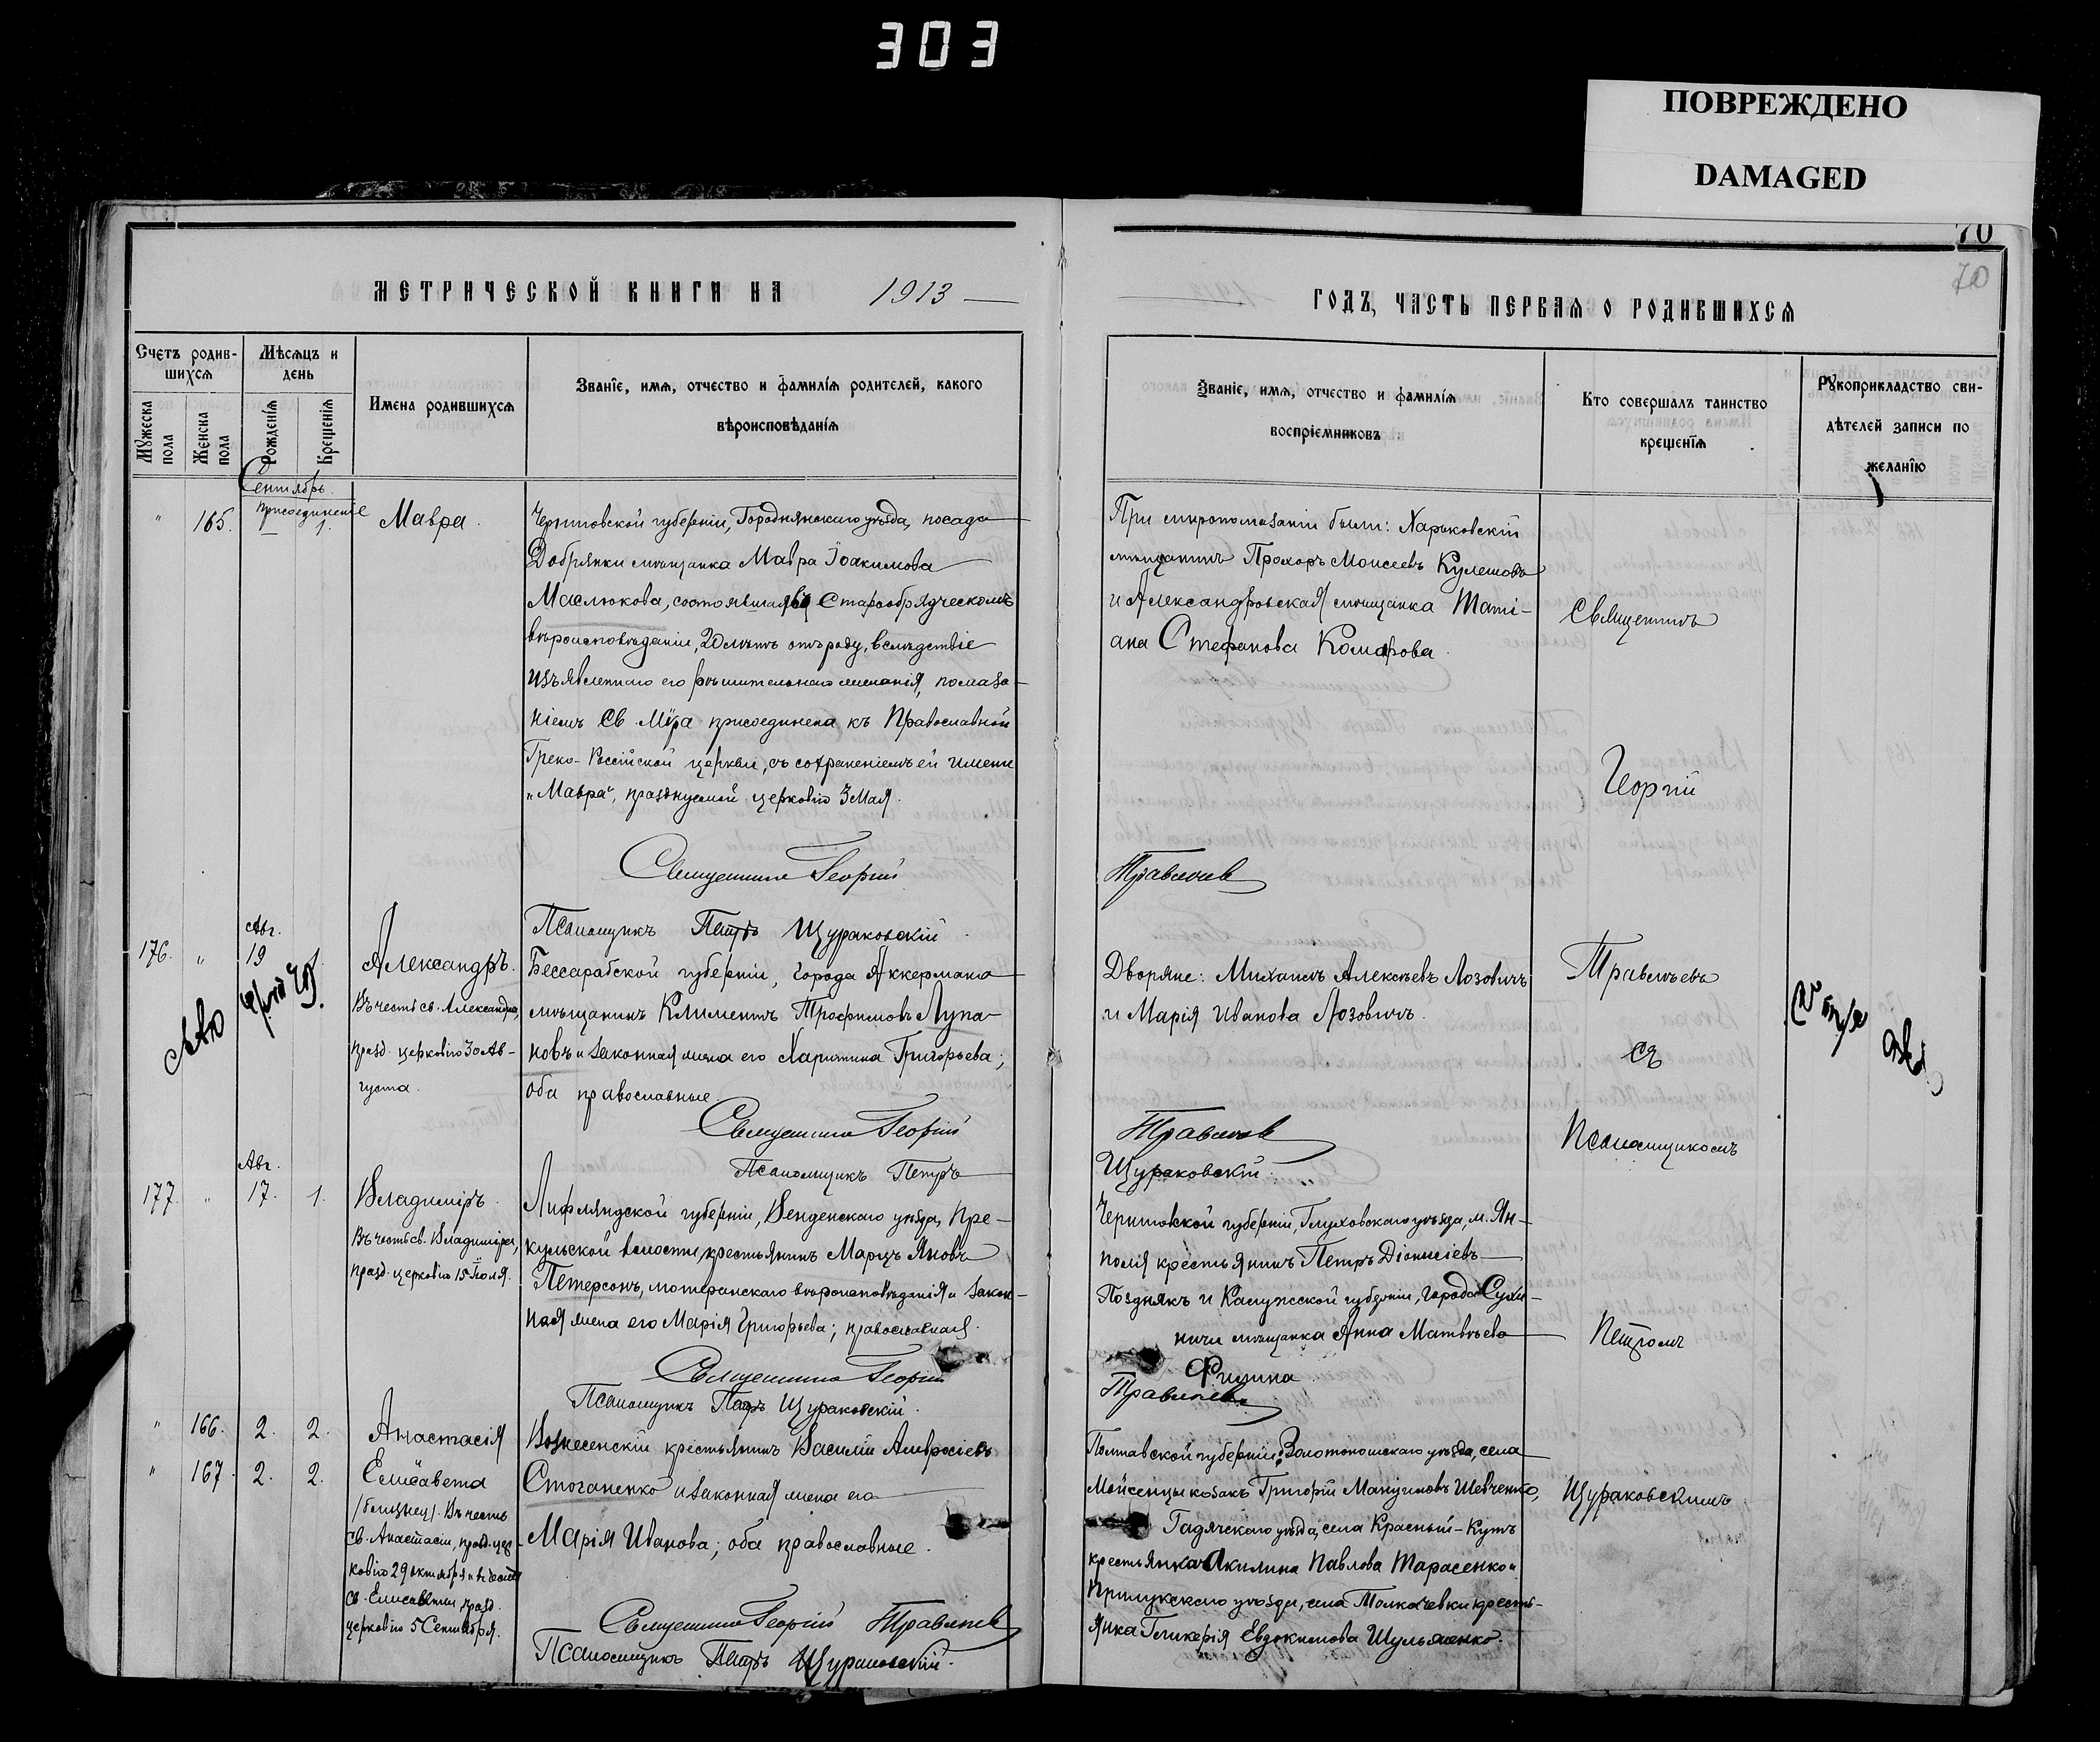 303
ПОВРЕЖДЕНО
DAMAGED
70
70
МЕТРИЧЕСКОЙ КНИГИ НА 1913
Счетъ родив-
шихся
Мѣсяцъ и
день
Мужеска
пола
Женска
пола
Рожденія
Крещенія
Имена родившихся
Званіе, имя, отчество и фамилія родителей, какого
вѣроисповѣданія
Сентябрь.
присоединеніе
" 165. — 1.
Мавра.
Черниговской губерніи, Городнянскаго уѣзда, посада
Добрянки мѣщанка Мавра Іоакимова
Маслюкова, состоявшая въ Старообрядческомъ
вѣроисповѣданіи, 20 лѣтъ отъ роду, вслѣдствіе
изъявленнаго его рѣшительнаго желанія, помаза-
ніемъ Св. Мѵра присоединена къ Православной
Греко-Россійской церкви, съ сохраненіемъ ей имени
"Мавра", празднуемой церковію 3 Мая.
Священникъ Георгій
Псаломщикъ Петръ Щураковскій.
Авг.
176. " 19
Александръ.
Въ честь св. Александра,
празд. церковію 30 Ав-
густа.
Бессарабской губерніи, города Аккермана
мѣщанинъ Климентъ Трофимовъ Лупа-
новъ и законная жена его Харитина Григорьева;
оба православные.
Священникъ Георгій
Псаломщикъ Петръ
Авг.
177. " 17. 1.
Владиміръ.
Въ честь св. Владиміра,
празд. церковію 15 Іюля.
Лифляндской губерніи, Венденскаго уѣзда, Пре-
кульской волости, крестьянинъ Марцъ Яновъ
Петерсонъ, лютеранскаго вѣроисповѣданія и закон-
ная жена его Марія Григорьева; православная.
Священникъ Георгій
Псаломщикъ Петръ Щураковскій.
" 166. 2. 2.
Анастасія
" 167. 2. 2.
Елисавета
/близнец/. Въ честь
св. Анастасіи, празд. цер-
ковію 29 октября и въ честь
св. Елисаветы, празд.
церковію 5 Сентября.
Вознесенскій крестьянинъ Василій Амвросіевъ
Стоганенко и законная жена его
Марія Иванова; оба православные.
Священникъ Георгій Травлѣевъ
Псаломщикъ Петръ Щураковскій.
ГОДЪ, ЧАСТЬ ПЕРВАЯ О РОДИВШИХСЯ
Званіе, имя, отчество и фамилія
воспріемниковъ
Кто совершалъ таинство
крещенія
Рукоприкладство сви-
дѣтелей записи по
желанію
При мѵропомазаніи были: Харьковскій
мѣщанинъ Прохоръ Моисеевъ Кулешовъ
и Александровская мѣщанка Таті-
ана Стефанова Комарова.
Травлѣевъ
Дворяне: Михаилъ Алексѣевъ Лозовичъ
и Марія Иванова Лозовичъ.
Травлѣевъ
Щураковскій.
Черниговской губерніи, Глуховскаго уѣзда, м. Ян-
поля крестьянинъ Петръ Діонисіевъ
Позднякъ и Калужской губерніи, города Сухи-
ничи мѣщанка Анна Матвѣева
Травлѣевъ
Полтавской губерніи: Золотоношскаго уѣзда, села
Мойсенцы козакъ Григорій Мануиловъ Шевченко,
Гадячскаго уѣзда, села Красный-Кутъ
крестьянка Акилина Павлова Тарасенко и
Прилукскаго уѣзда, села Толкачевки кресть-
янка Гликерія Евдокимова Шульженко.
Священникъ
Георгій
Травлѣевъ
съ
Псаломщикомъ
Петромъ
Щураковскимъ.